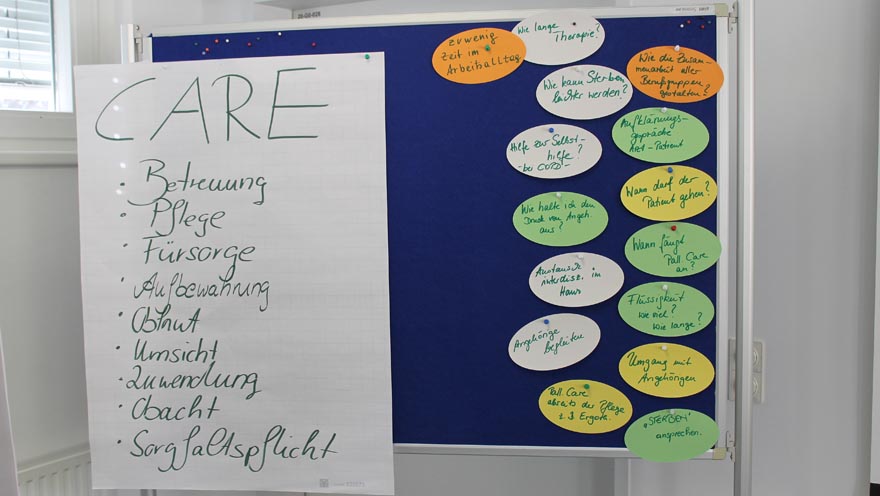 CARE
· Betreuung
· Pflege
· Fürsorge
· Aufbewahrung
· Obhut
· Umsicht
· Zuwendung
· Obacht
· Sorgfaltspflicht
zuwenig
Zeit im
Arbeitsalltag
Wie lange
Therapie?
Wie kann Sterben
leichter werden?
Hilfe zur Selbst-
hilfe?
- bei COPD -
Wie halte ich den
Druck von Angeh.
aus?
Austausch
interdisz. im
Haus
Angehörige
begleiten
Pall. Care
abseits der Pflege
z.B. Ergoth.
Wie die Zusam-
menarbeit aller
Berufsgruppen
gestalten?
Aufklärungs-
gespräche
Arzt - Patient
Wann darf der
Patient gehen?
Wann fängt
Pall. Care
an?
Flüssigkeit
wie viel?
wie lange?
Umgang mit
Angehörigen
„STERBEN"
ansprechen.